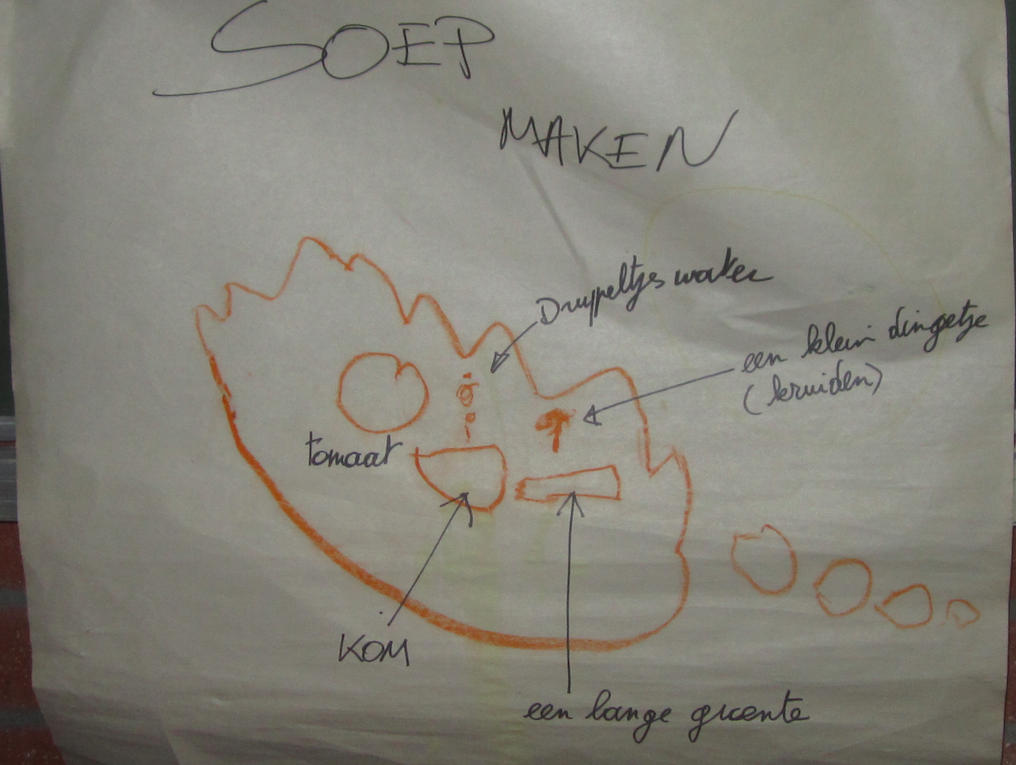 SOEP
MAKEN
Druppeltjes water
een klein dingetje
(kruiden)
tomaat
KOM
een lange groente